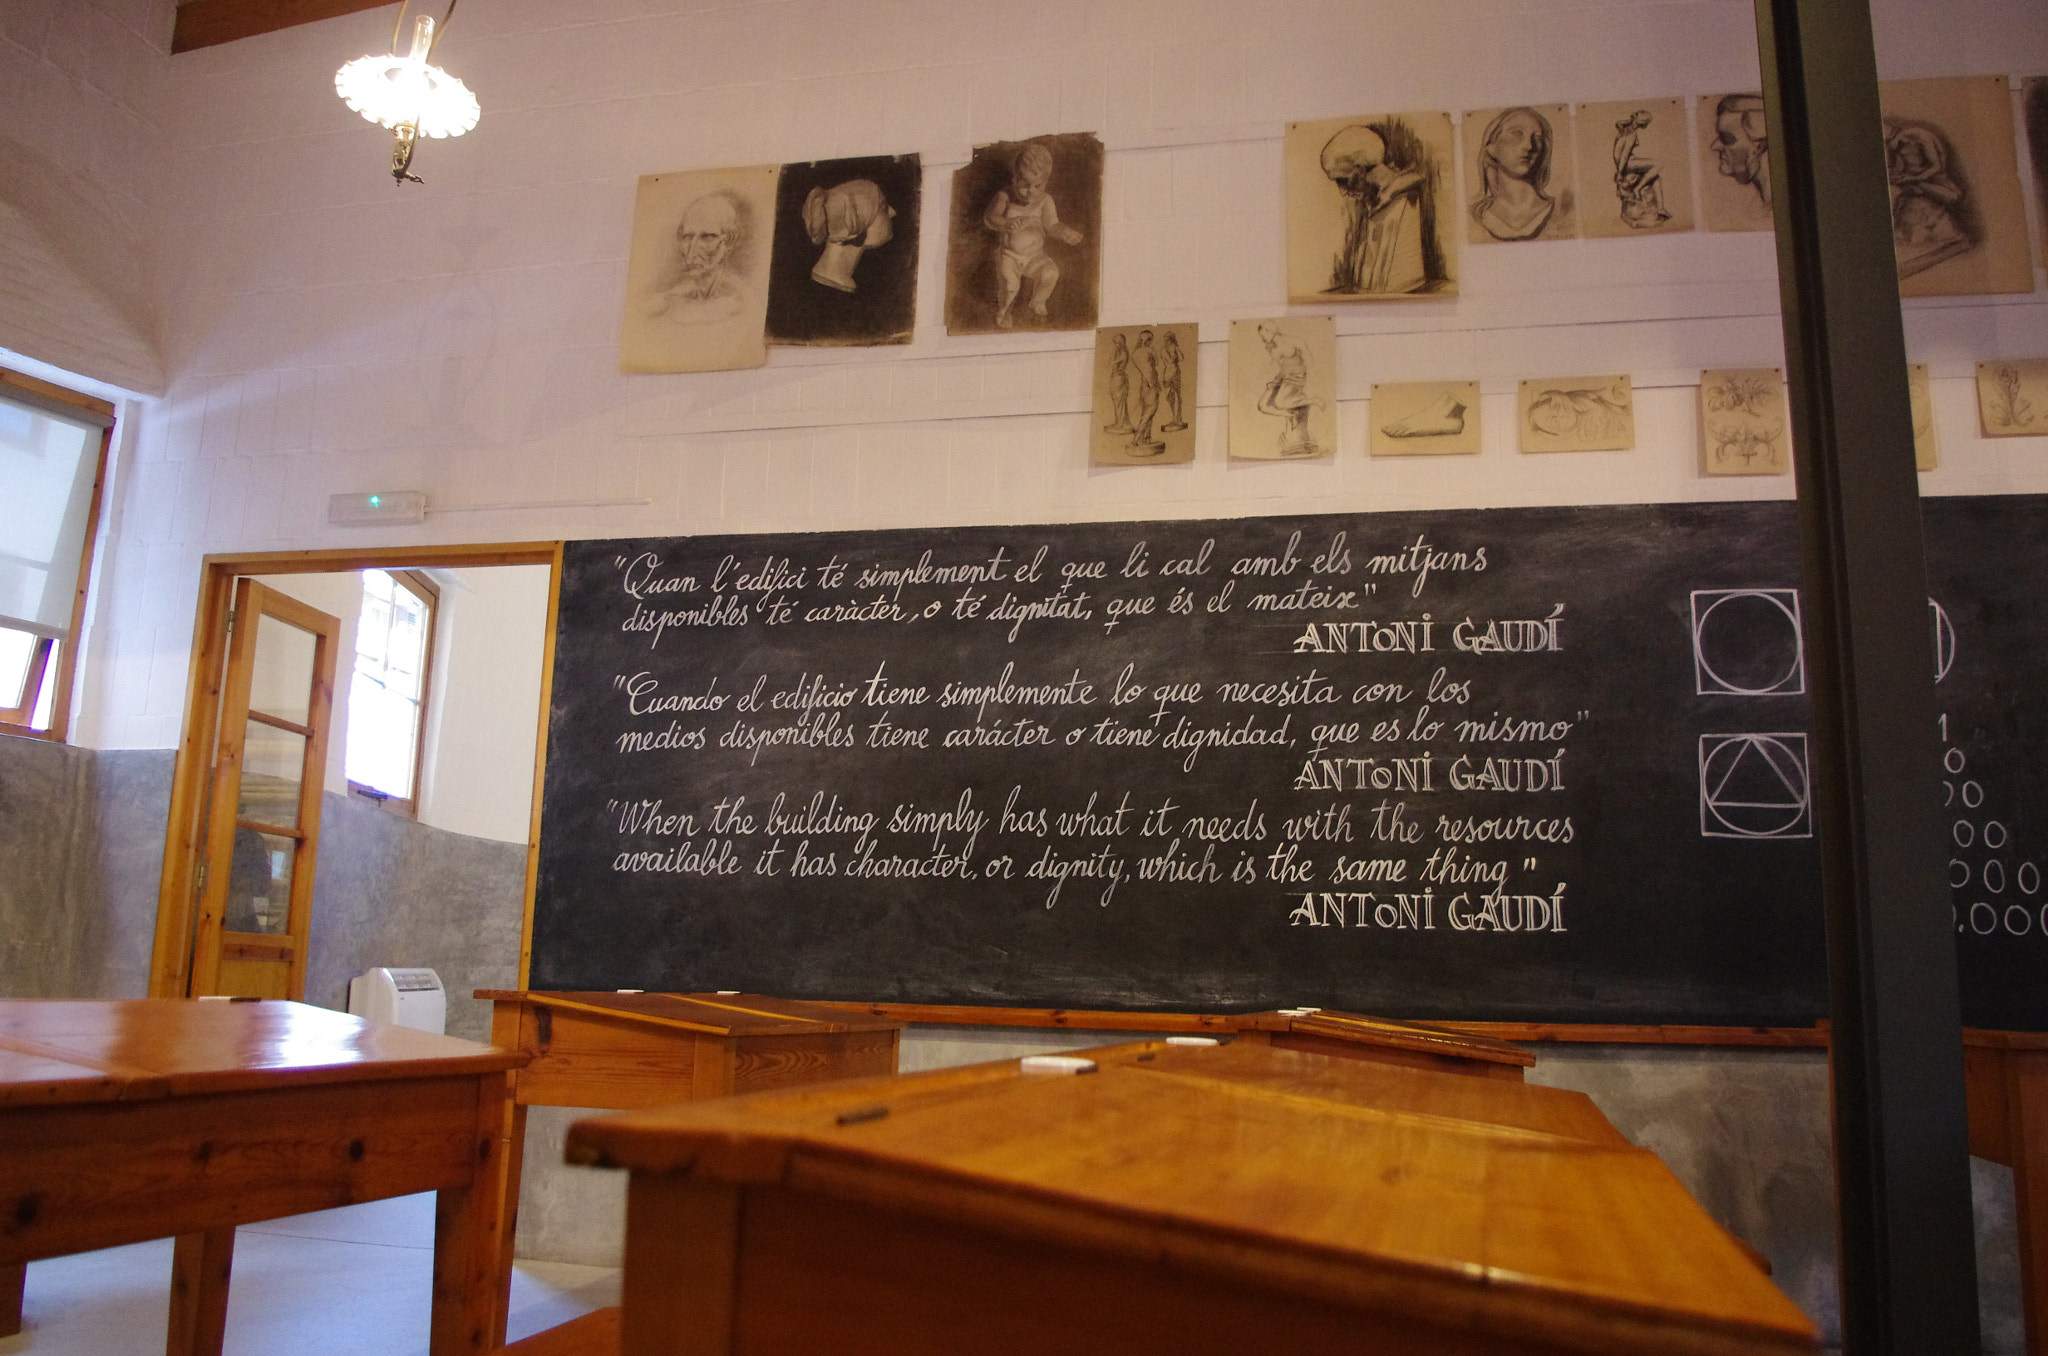 "Quan l'edifici té simplement el que li cal amb els mitjans
disponibles té caràcter, o té dignitat, que és el mateix"
ANTONI GAUDÍ
"Cuando el edificio tiene simplemente lo que necesita con los
medios disponibles tiene carácter o tiene dignidad, que es lo mismo"
ANTONI GAUDÍ
"When the building simply has what it needs with the resources
available it has character, or dignity, which is the same thing"
ANTONI GAUDÍ